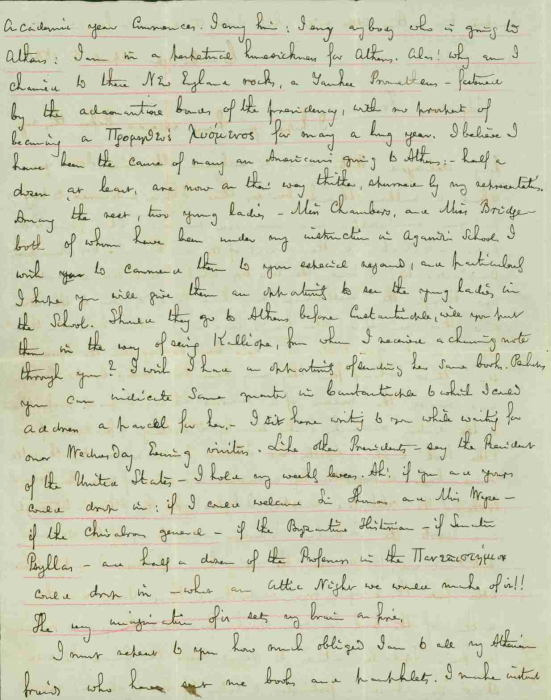 Academic year commences. I envy him: I envy anybody who is going to
Athens: I am in a perpetual homesickness for Athens. Alas! why am I
chained to these New England rocks, a Yankee Prometheus - fastened
by the adamantine bonds of the presidency, with no prospect of
becoming a Προμηθεὺς λυόμενος for many a long year. I believe I
have been the cause of many an American's going to Athens; - half a
dozen at least, are now on their way thither, by my representations.
Among the rest, two young ladies - Miss Chambers, and Miss Bridge
both of whom have been under my instruction in Agassiz School. I
wish to commend them to your especial regard, and particularly
I hope you will give them an opportunity to see the young ladies in
the School. Should they go to Athens before Constantinople, will you put
them in the way of seeing Kalliope, from whom I received a charming note
through you? I wish I had an opportunity of sending her some books. Perhaps
you can indicate some quarter in Constantinople to which I could
address a parcel for her. - I sit here writing to you while waiting for
our Wednesday Evening visitors. Like other Presidents - say the President
of the United States - I hold my weekly levees. Ah! if you and yours
could drop in: if I could welcome Sir Thomas and Miss Wyse -
if the chivalrous general - if the Byzantine Historian - if Senator
Psyllas - and half a dozen of the Professors in the Πανεπιστήμιον
could drop in - what an Attic Night we would make of it!!
The very imagination of it sets my brain on fire.
I must repeat to you how much obliged I am to all my Athenian
friends who have sent me books and pamphlets. I make instant